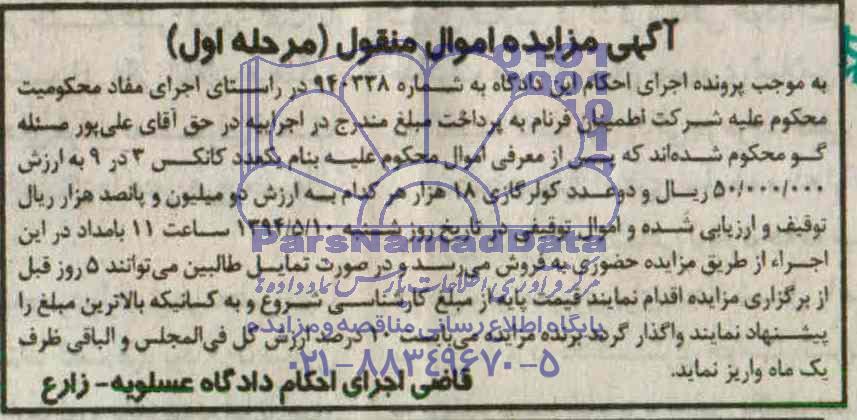 آگهی مزایده اموال منقول (مرحله اول)
به موجب پرونده اجرای احکام این دادگاه به شماره ۹۴۰۳۳۸ در راستای اجرای مفاد محکومیت
محکوم علیه شرکت اطمینان فرنام به پرداخت مبلغ مندرج در اجراییه در حق آقای علی‌پور مسئله
گو محکوم شده‌اند که پس از معرفی اموال محکوم علیه بنام یکعدد کانکس ۳ در ۹ به ارزش
۵۰/۰۰۰/۰۰۰ ریال و دو عدد کولرگازی ۱۸ هزار هر کدام به ارزش دو میلیون و پانصد هزار ریال
توقیف و ارزیابی شده و اموال توقیفی در تاریخ روز شنبه ۱۳۹۴/۵/۱۰ ساعت ۱۱ بامداد در این
اجراء از طریق مزایده حضوری به فروش می‌رسد و در صورت تمایل طالبین می‌توانند ۵ روز قبل
از برگزاری مزایده اقدام نمایند قیمت پایه از مبلغ کارشناسی شروع و به کسانیکه بالاترین مبلغ را
پیشنهاد نمایند واگذار گردد برنده مزایده می‌بایست ۱۰ درصد ارزش کل فی‌المجلس و الباقی ظرف
یک ماه واریز نماید.
قاضی اجرای احکام دادگاه عسلویه- زارع
ParsNamadData
مرکز فرآوری اطلاعات پارس نماد داده‌ها
پایگاه اطلاع رسانی مناقصه و مزایده
۰۲۱-۸۸۳۴۹۶۷۰-۵